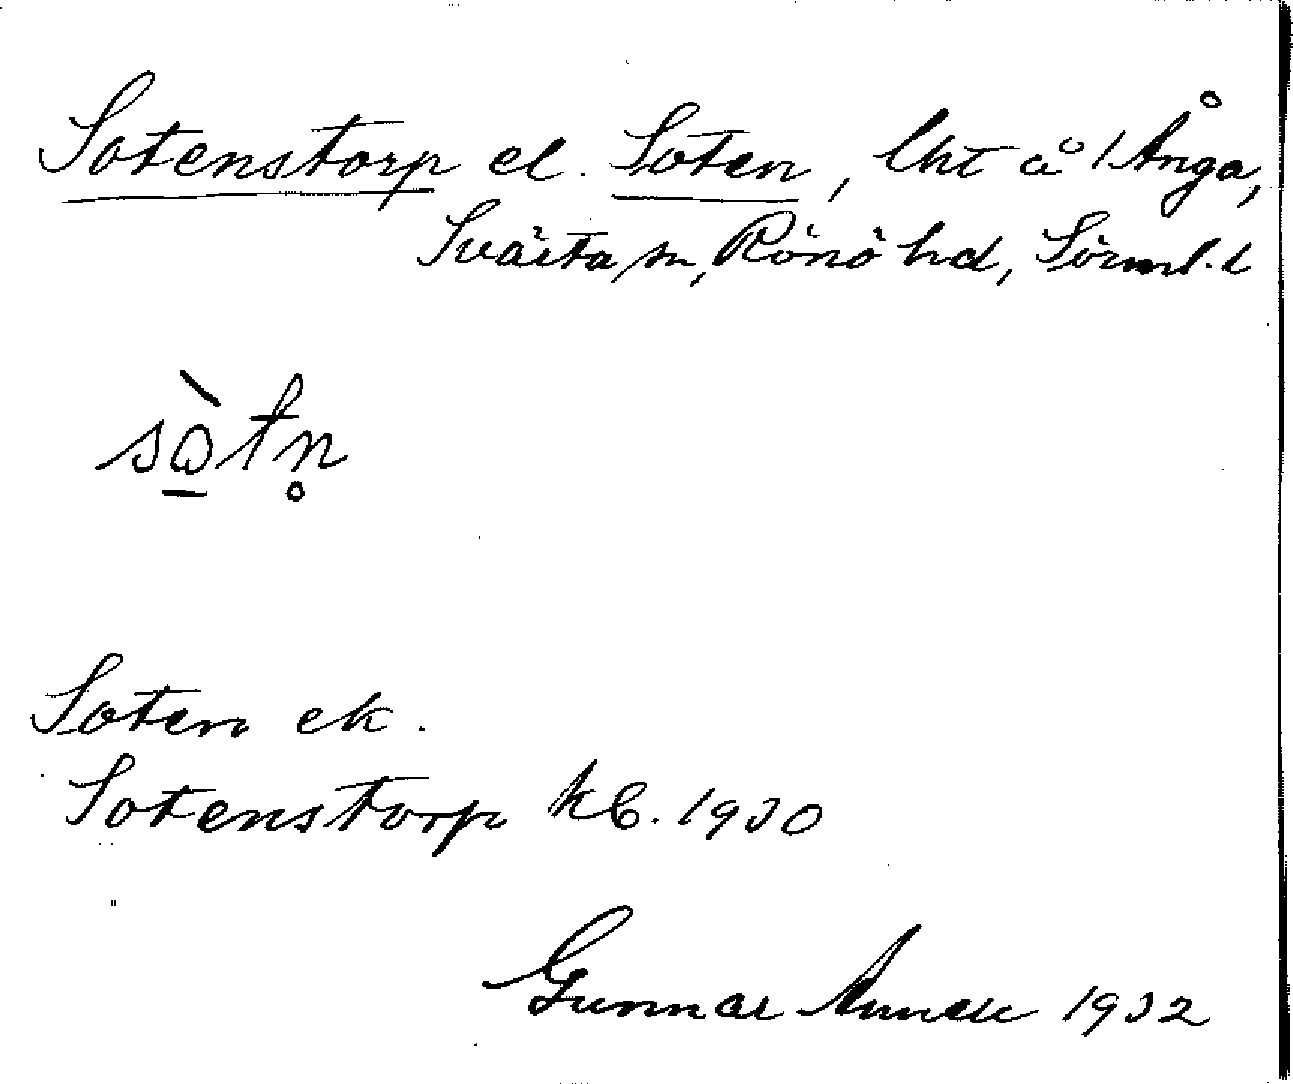 Sotenstorp el. Soten, lht å 1 Ånga,
Svärta sn, Rönö hd, Sörml. l
sò̱tn̥
Soten ek.
Sotenstorp kb. 1930
Gunnar 1932